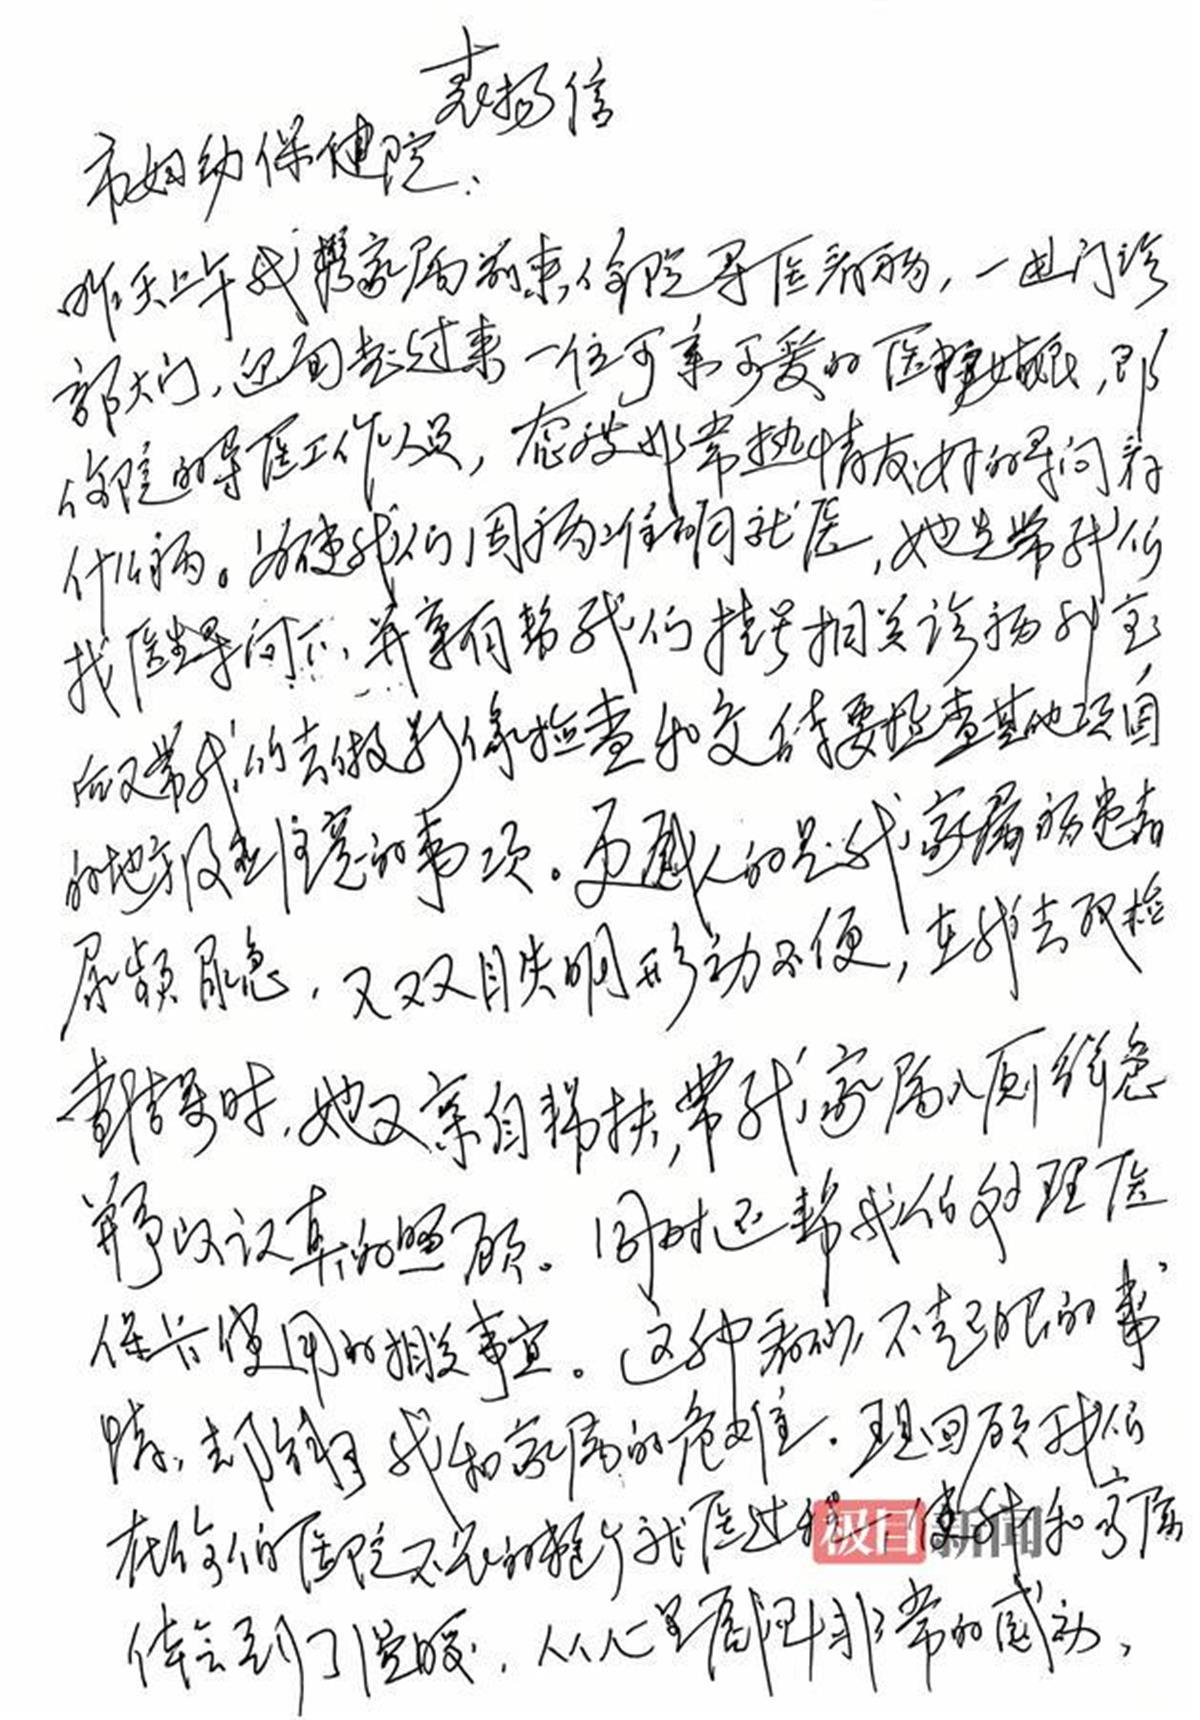 表扬信
市妇幼保健院：
昨天上午我携家属前来你院寻医看病，一进门诊
部大门，迎面走过来一位可亲可爱的医护姑娘，即
你院的导医工作人员，态度非常热情友好的寻问看
什么病。为使我们因病准确就医，她先带我们
找医生寻问下，并亲自帮我们挂号相关诊病科室
后又带我们去做影像检查和交待要检查其他项目
的地方及注意的事项。更感人的是我家属病患者
尿频尿急，又双目失明形动不便，在我去取检
查结果时，她又亲自搀扶，带我家属入厕解急
并予以认真的照顾。同时还帮我们处理医
保卡使用的相关事宜。这种看似不起眼的事
情，却解我和家属的危难。现回顾我们
在你们医院不长的整个就医过程，使我和家属
体会到了温暖，从心里面非常的感动，
极目新闻